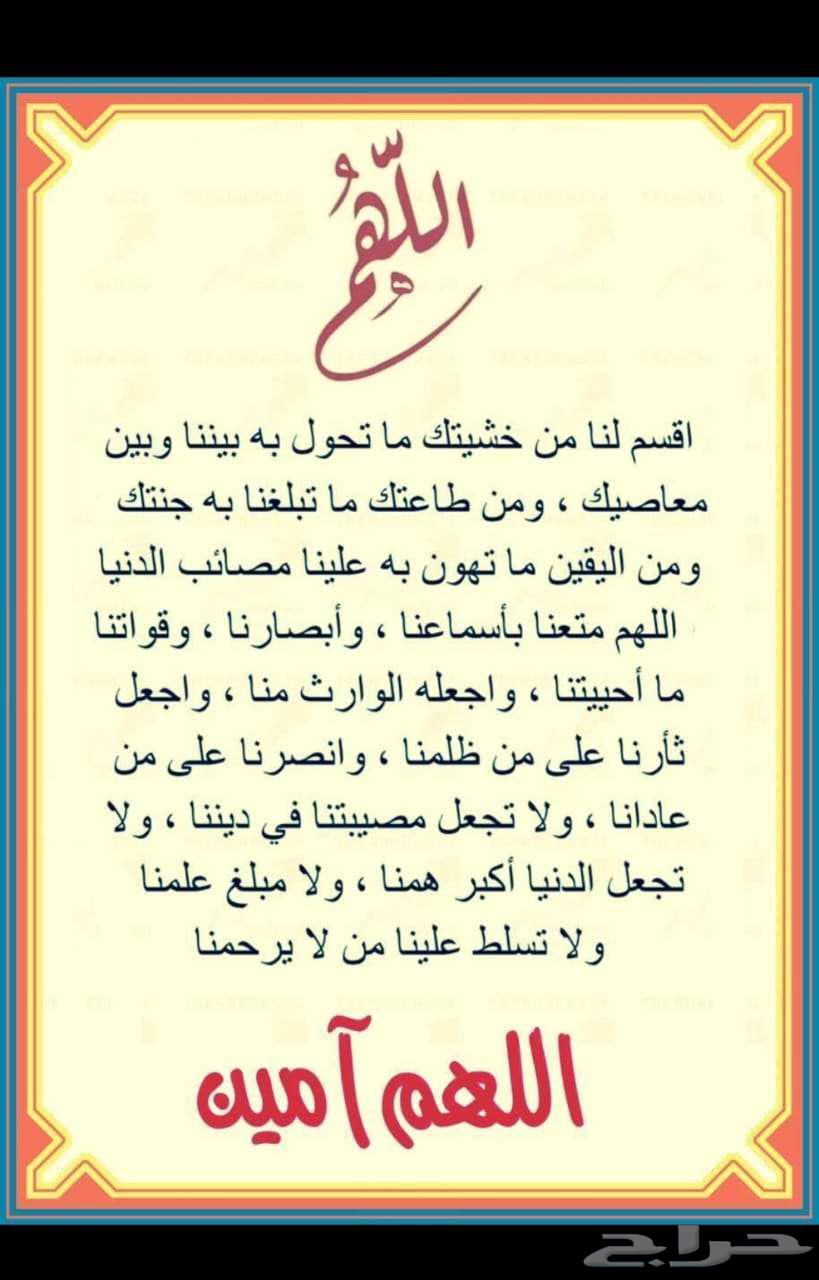 اللَّهُم
اقسم لنا من خشيتك ما تحول به بيننا وبين
معاصيك ، ومن طاعتك ما تبلغنا به جنتك
ومن اليقين ما تهون به علينا مصائب الدنيا
اللهم متعنا بأسماعنا ، وأبصارنا ، وقواتنا
ما أحييتنا ، واجعله الوارث منا ، واجعل
ثأرنا على من ظلمنا ، وانصرنا على من
عادانا ، ولا تجعل مصيبتنا في ديننا ، ولا
تجعل الدنيا أكبر همنا ، ولا مبلغ علمنا
ولا تسلط علينا من لا يرحمنا
اللهم آمين
حراج